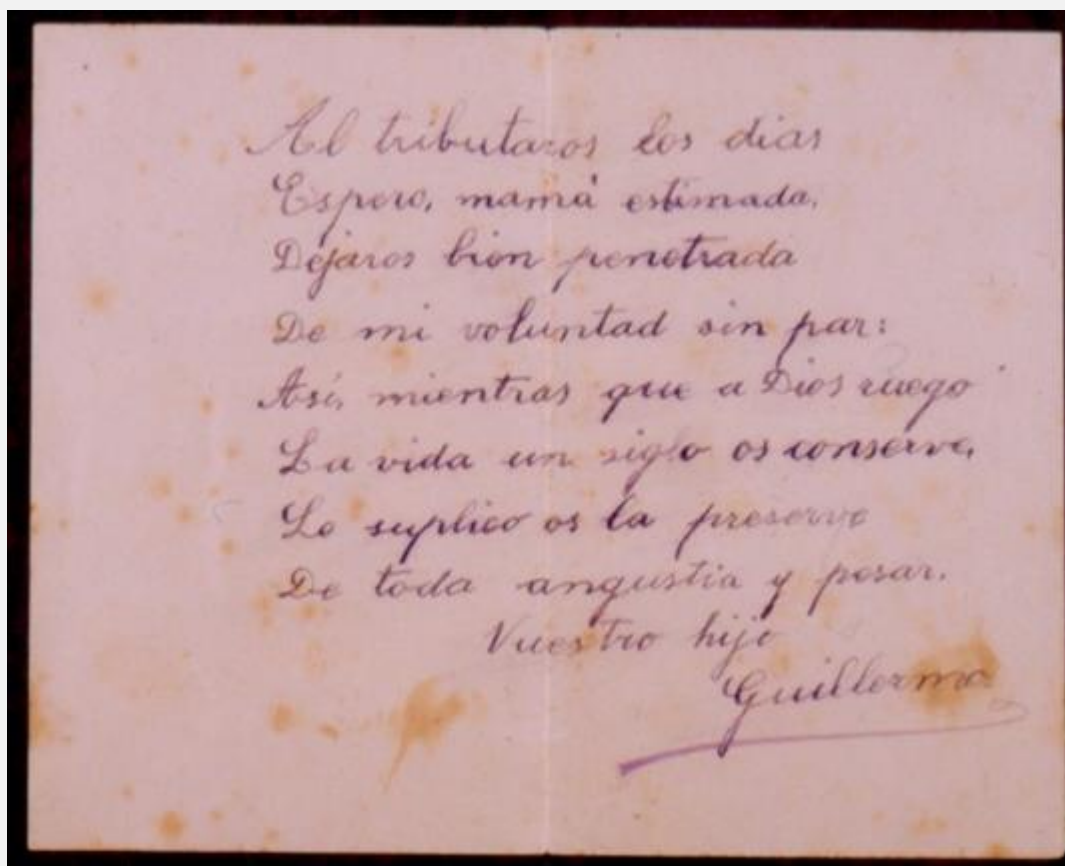 Al tributaros los dias
Espero, mamá estimada,
Dejaros bien penetrada
De mi voluntad sin par:
Asi, mientras que a Dios ruego
La vida un siglo os conserve,
Le suplico os la preserve
De toda angustia y pesar.
Vuestro hijo
Guillermo